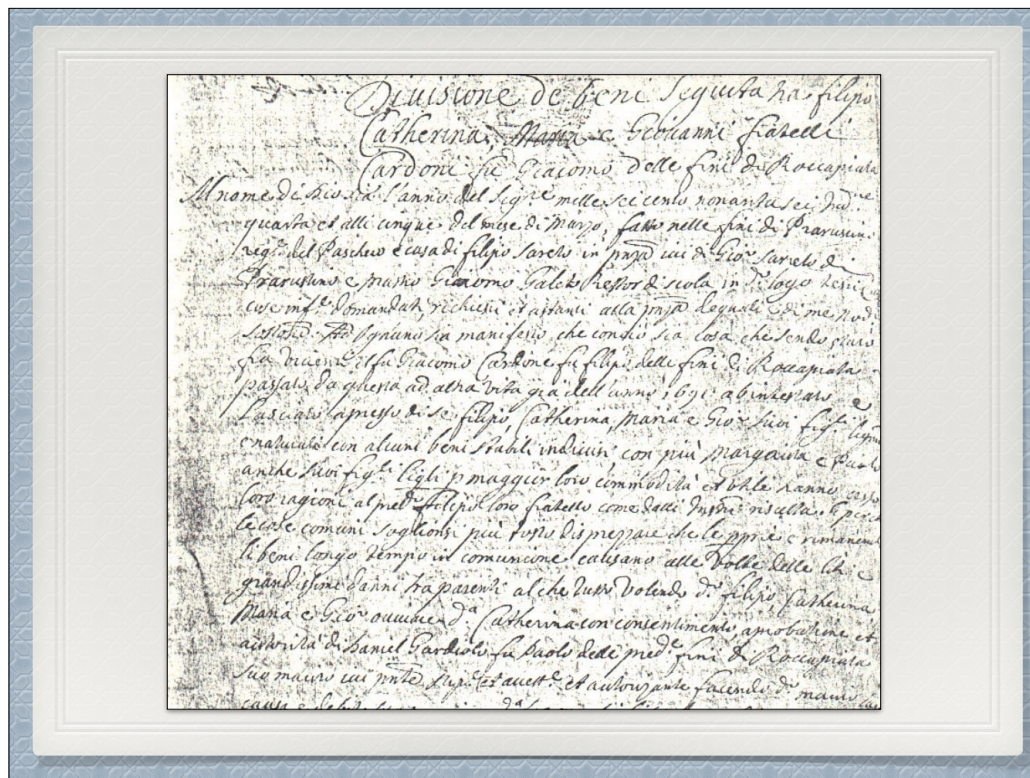 Diuisione de beni seguita tra filipo
Catherina, Maria e Giouanni fratelli
Cardoni fu Giacomo delle fini di Roccapiata
Al nome di Dio sia l'anno del sig.re mille sei cento nonanta sei Ind.ne
quarta et alli cinque del mese di Marzo, fatto nelle fini di Prarustino
reg.e del Paschero e casa di filipo Sareto in iui di Gio: Sareto di
Prarustino e Giacomo Galeto Rettor di scola in d.o logo
domandati richiesti et astanti alla de quali e di me Nod.o
Ad ogniuno sia manifesto, che consio sia cosa, che sendo
il fu Giacomo Cardone fu filipo delle fini di Roccapiata
passato da questa ad altra vita già dell'anno 1691 abintestato e
Lasciato apresso di se filipo, Catherina, Maria e Gio: suoi fig.li
e naturali con alcuni beni stabili indiuisi con più Margarita e Paolo
anche suoi fig.li p maggior loro commodità et utile hanno
loro ragioni al pred.o filipo loro fratello come dalli risulta E perche
le cose comuni sogliono più tosto disprezzare che le pprie e rimanendo
li beni longo tempo in comunione causano alle volte delle liti e
grandissimi danni tra parenti al che tutto volendo d.i filipo Catherina
Maria e Gio: d.a Catherina con consentimento, aprobatione et
autorità di Daniel Gardiolo fu Paolo delle pred.e fini di Roccapiata
suo marito iui et autorizante facendo d.o marito